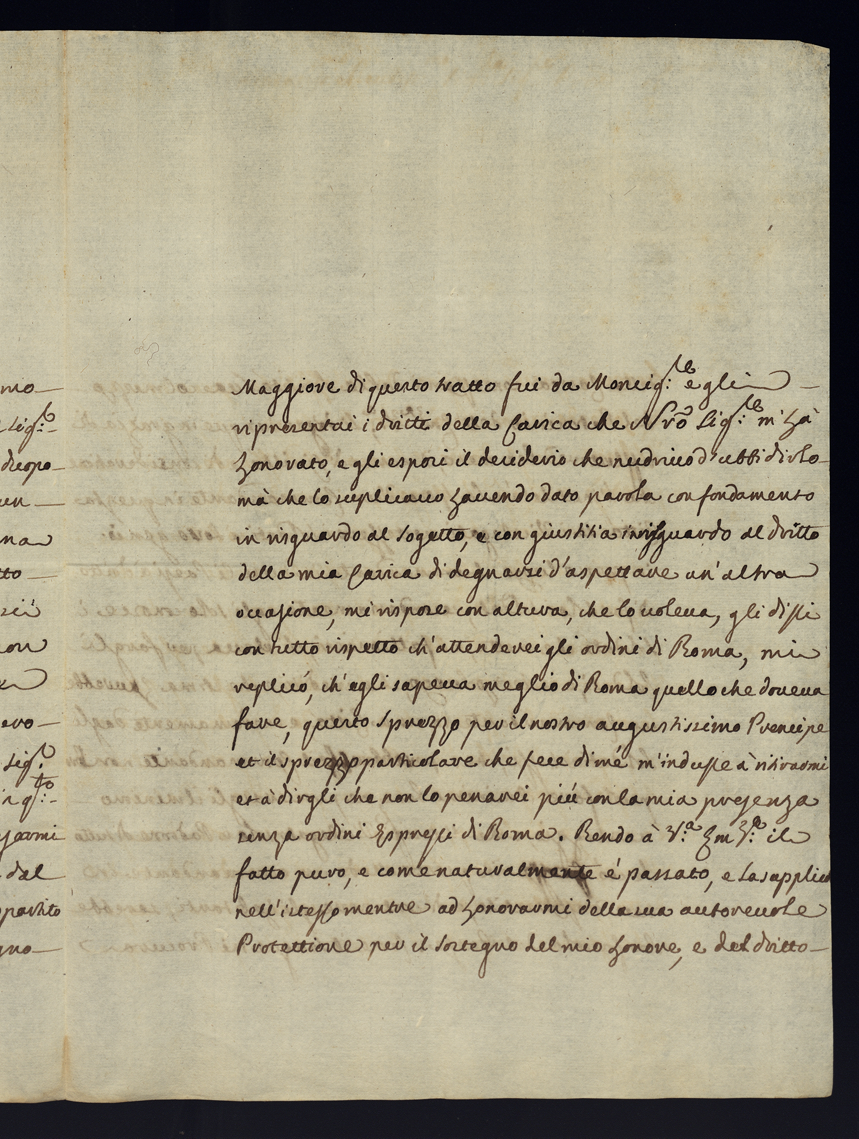 Maggiore di questo tratto fui da Monsig.re e gli
ripresentai i dritti della Carica che Nrõ Sig.re m'hà
honorato, e gli esposi il desiderio che nudrivo d'ubbidirlo
mà che lo suplicavo havendo dato parola con fondamento
in risguardo al sogetto, e con giustitia in risguardo al dritto
della mia Carica di degnarsi d'aspettare un'altra
occasione, mi rispose con altura, che lo voleva, gli dissi
con tutto rispetto ch'attenderei gli ordini di Roma, mi
replicó, ch'egli sapeva meglio di Roma quello che doveva
fare, questo sprezzo per il nostro augustissimo Prencipe
et il sprezzo particolare che fece di mé m'indusse à ritirarmi
et à dirgli che non lo penarei più con la mia presenza
senza ordini espressi di Roma. Rendo à V.ra Em.za il
fatto puro, e come naturalmente é passato, e la supplico
nell'istesso mentre ad honorarmi della sua autorevole
Protettione per il sostegno del mio honore, e del dritto
mo
Sig.re
dicopo
un
na
tto
non
evo
Sig.r
dal
partito
gno